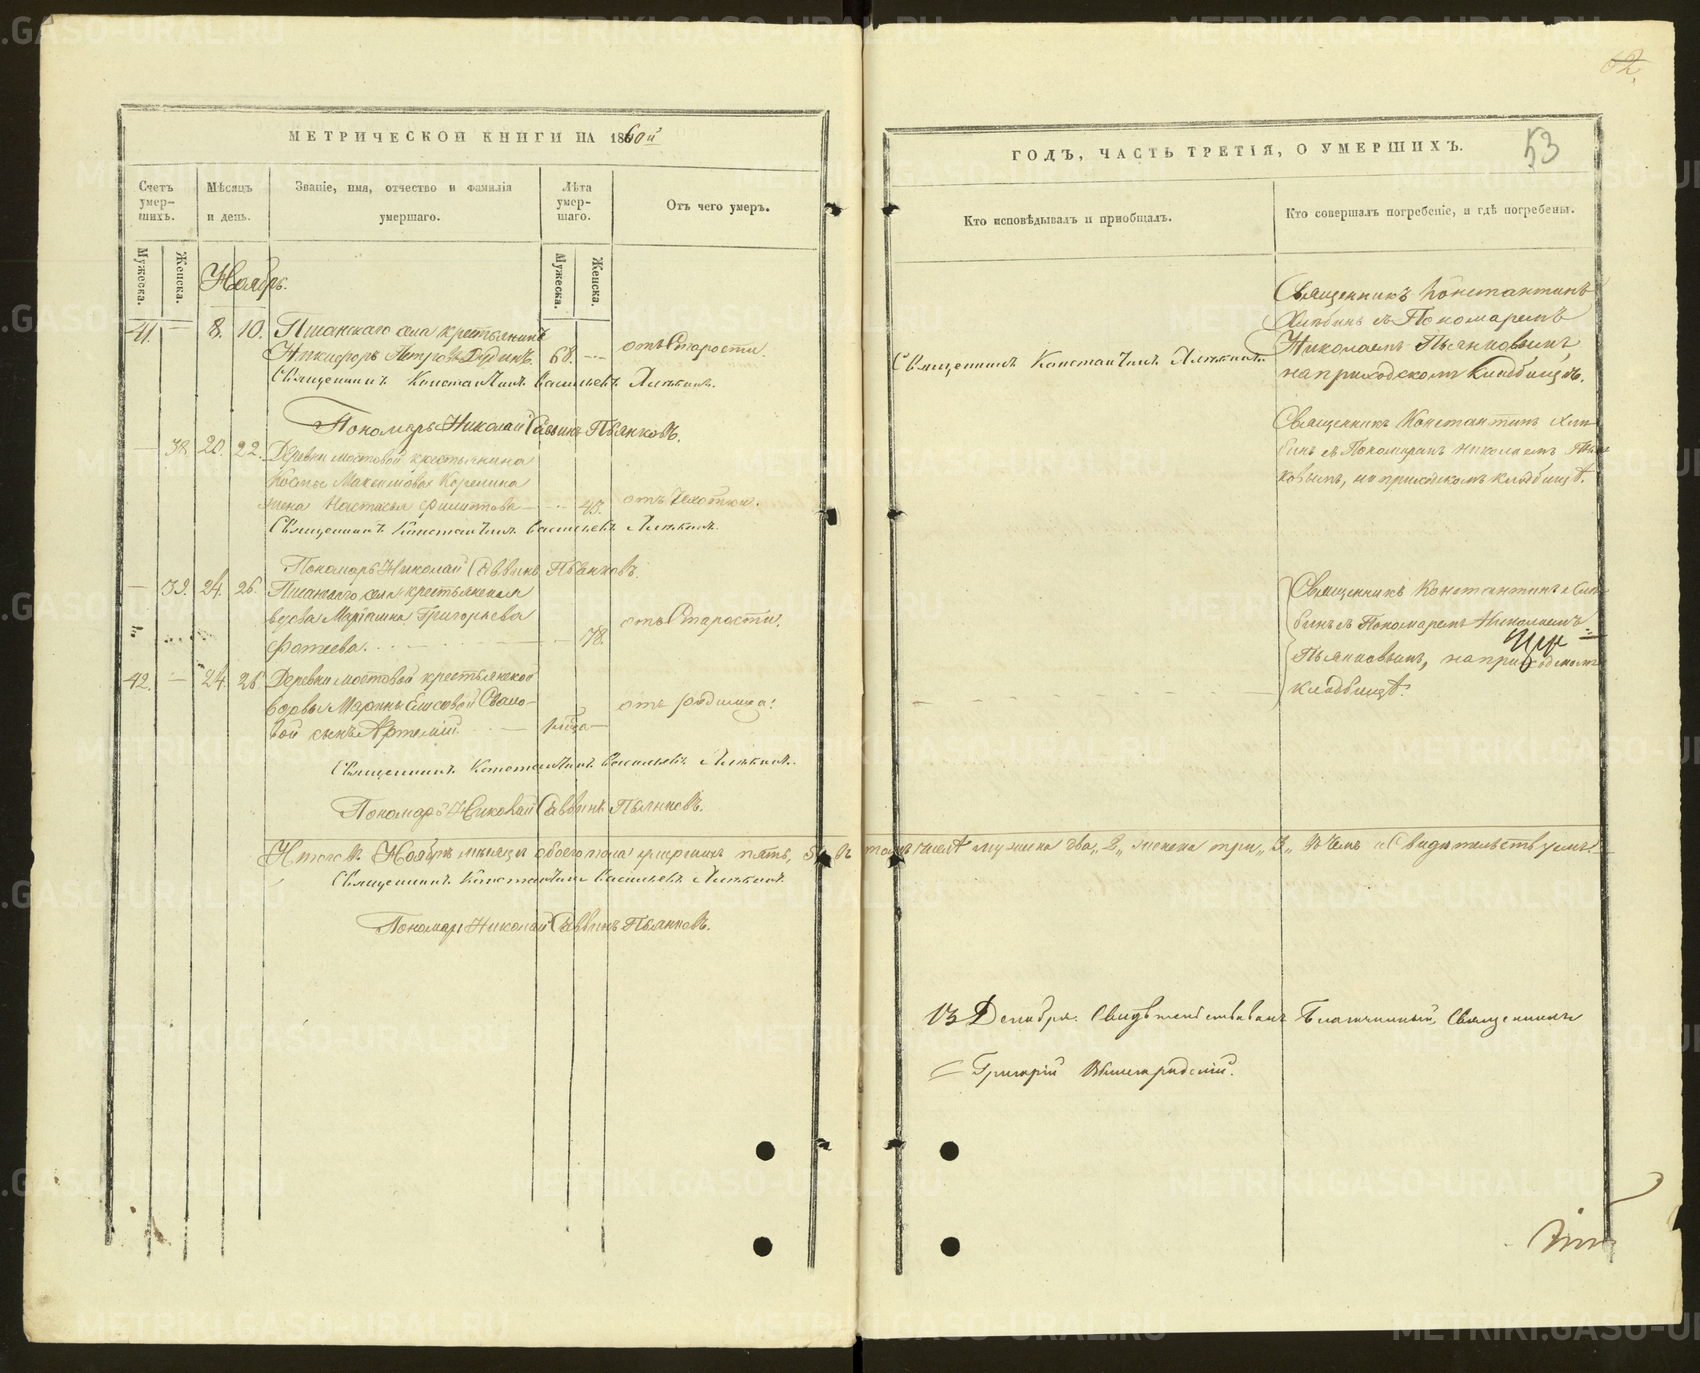 МЕТРИЧЕСКОЙ КНИГИ НА 1860й
Счетъ умер-шихъ.
Мѣсяцъ и день.
Званіе, имя, отчество и фамилія умершаго.
Лѣта умер-шаго.
Отъ чего умеръ.
Мужеска.
Женска.
Мужеска.
Женска.
Ноябрь.
41. — 8. 10. села крестьянинъ
Никифоръ Петровъ Дудинъ. 68. — отъ Старости.
Священникъ Константинъ Васильевъ
Пономарь Николай Саввинъ Пьянковъ.
— 38. 20. 22. Деревни Мостовой крестьянина
Максимова Корелина
жена Настасья Филиппова — 45. отъ Чахотки.
Священникъ Константинъ Васильевъ
Пономарь Николай Саввинъ Пьянковъ.
— 39. 24. 26. села крестьянская
вдова Маріамна Григорьева
Фатеева. — 78. отъ Старости.
42. — 24. 26. Деревни Мостовой крестьянской
вдовы
сынъ Артемій. — отъ родимца.
Священникъ Константинъ Васильевъ
Пономарь Николай Саввинъ Пьянковъ.
Итого въ Ноябрѣ мѣсяцѣ обоего пола умершихъ пять, 5. въ томъ числѣ мужеска два, 2, женска три, 3, въ чемъ и свидѣтельствуемъ.
Священникъ Константинъ Васильевъ
Пономарь Николай Саввинъ Пьянковъ.
62.
53
ГОДЪ, ЧАСТЬ ТРЕТІЯ, О УМЕРШИХЪ.
Кто исповѣдывалъ и пріобщалъ.
Кто совершалъ погребеніе, и гдѣ погребены.
Священникъ Константинъ
Священникъ Константинъ
съ Пономаремъ
Николаемъ Пьянковымъ,
на приходскомъ кладбищѣ.
Священникъ Константинъ
съ Пономаремъ Николаемъ Пьян-
ковымъ, на приходскомъ кладбищѣ.
Священникъ Константинъ
съ Пономаремъ Николаемъ
Пьянковымъ, на приходскомъ
кладбищѣ.
13 Декабря. Свидѣтельствовалъ Благочинный, Священникъ
Григорій
METRIKI.GASO-URAL.RU